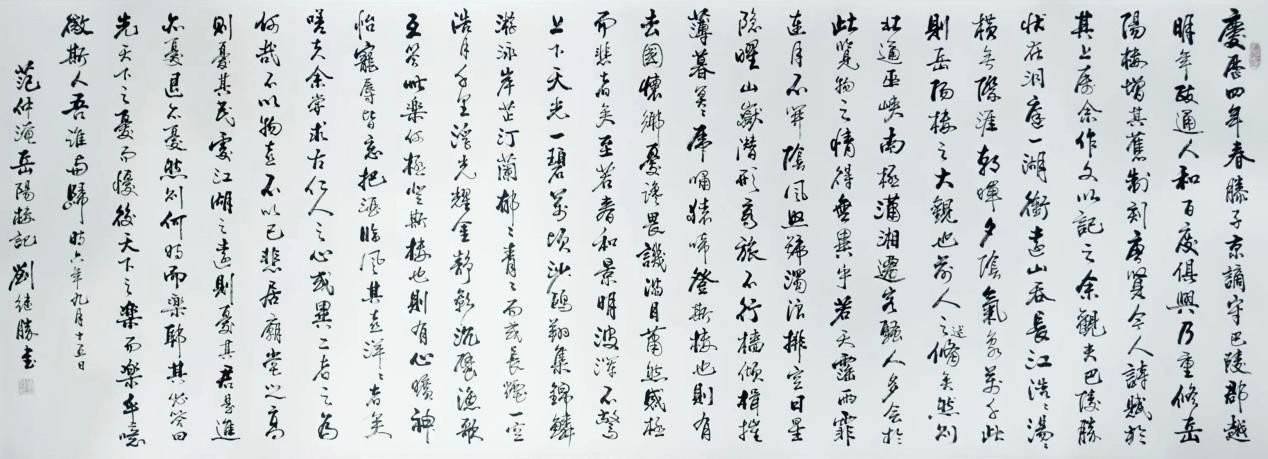 慶曆四年春滕子京謫守巴陵郡越
明年政通人和百廢俱興乃重修岳
陽樓增其舊制刻唐賢今人詩賦於
其上屬余作文以記之余觀夫巴陵勝
狀在洞庭一湖銜遠山吞長江浩〻湯〻
橫無際涯朝暉夕陰氣象萬千此
則岳陽樓之大觀也前人之述備矣然則
北通巫峽南極瀟湘遷客騷人多會於
此覽物之情得無異乎若夫霪雨霏
連月不開陰風怒號濁浪排空日星
隱曜山嶽潛形商旅不行檣傾楫摧
薄暮冥〻虎嘯猿啼登斯樓也則有
去國懷鄉憂讒畏譏滿目蕭然感極
而悲者矣至若春和景明波瀾不驚
上下天光一碧萬頃沙鷗翔集錦鱗
游泳岸芷汀蘭郁〻青〻而或長煙一空
皓月千里浮光耀金靜影沉璧漁歌
互答此樂何極登斯樓也則有心曠神
怡寵辱皆忘把酒臨風其喜洋〻者矣
嗟夫余嘗求古仁人之心或異二者之為
何哉不以物喜不以己悲居廟堂之高
則憂其民處江湖之遠則憂其君是進
亦憂退亦憂然則何時而樂耶其必答曰
先天下之憂而憂後天下之樂而樂乎噫
微斯人吾誰與歸時六年九月十五日
范仲淹岳陽樓記 劉继勝書